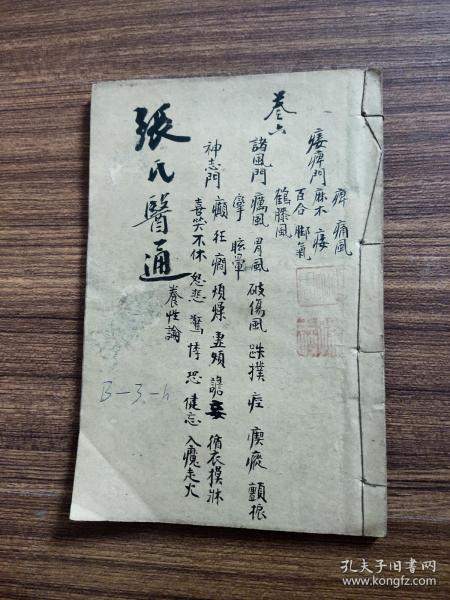 卷六
痿痹門 麻木 痿
痹 痛風
百合 脚氣
鶴膝風
諸風門 癘風 胃風 破傷風 跌撲 痙 瘈瘲 顫振
攣 眩暈
神志門 癲 狂 癇 煩燥 虛煩 譫妄 循衣摸牀
喜笑不休 怒悲 驚 悸 恐 健忘 入魔走火
張氏醫通
養性論
B-3-6
孔夫子旧书网
www.kongfz.com